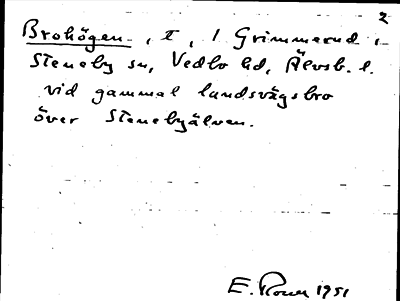 2
Brohögen, I, 1 Grimmerud i
Steneby sn, Vedbo hd, Älvsb. l.
vid gammal landsvägsbro
över Stenebyälven.
E. 1951